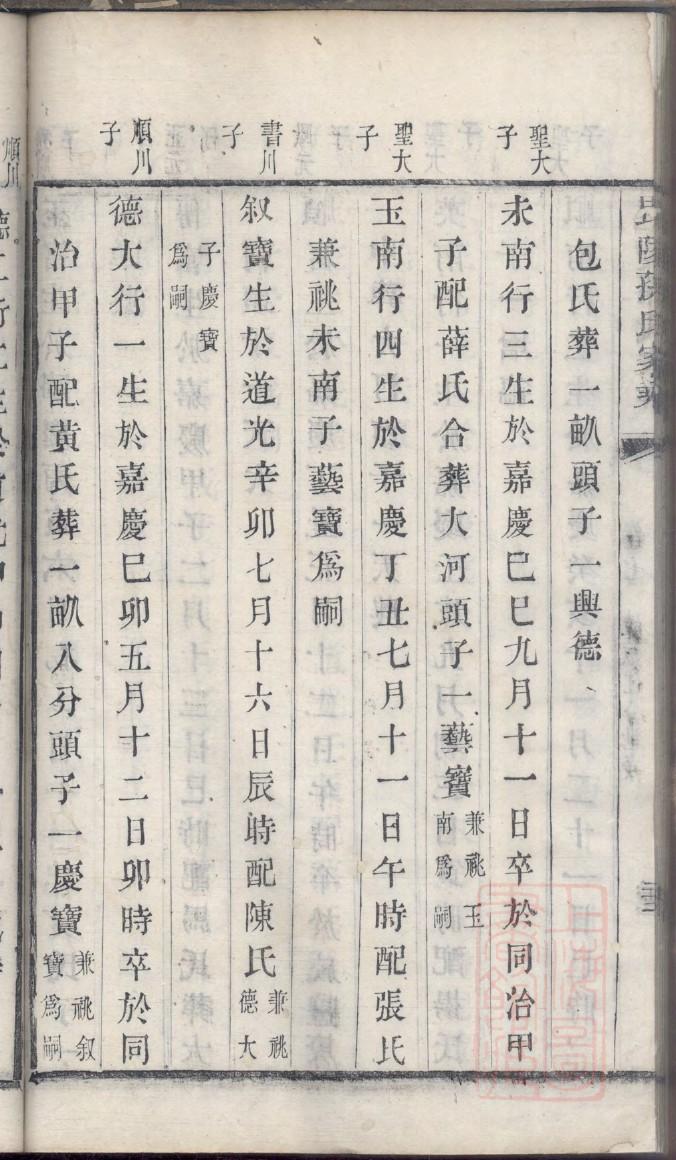 毘陵孫氏家乘
包氏葬一畝頭子一興德
聖大子
未南行三生於嘉慶巳巳九月十一日卒於同治甲
子配薛氏合葬大河頭子一藝寶兼祧玉南爲嗣
聖大子
玉南行四生於嘉慶丁丑七月十一日午時配張氏
兼祧未南子藝寶爲嗣
書川子
叙寶生於道光辛卯七月十六日辰時配陳氏兼祧德大
子慶寶爲嗣
順川子
德大行一生於嘉慶巳卯五月十二日卯時卒於同
治甲子配黃氏葬一畝八分頭子一慶寶兼祧叙寶爲嗣
順川